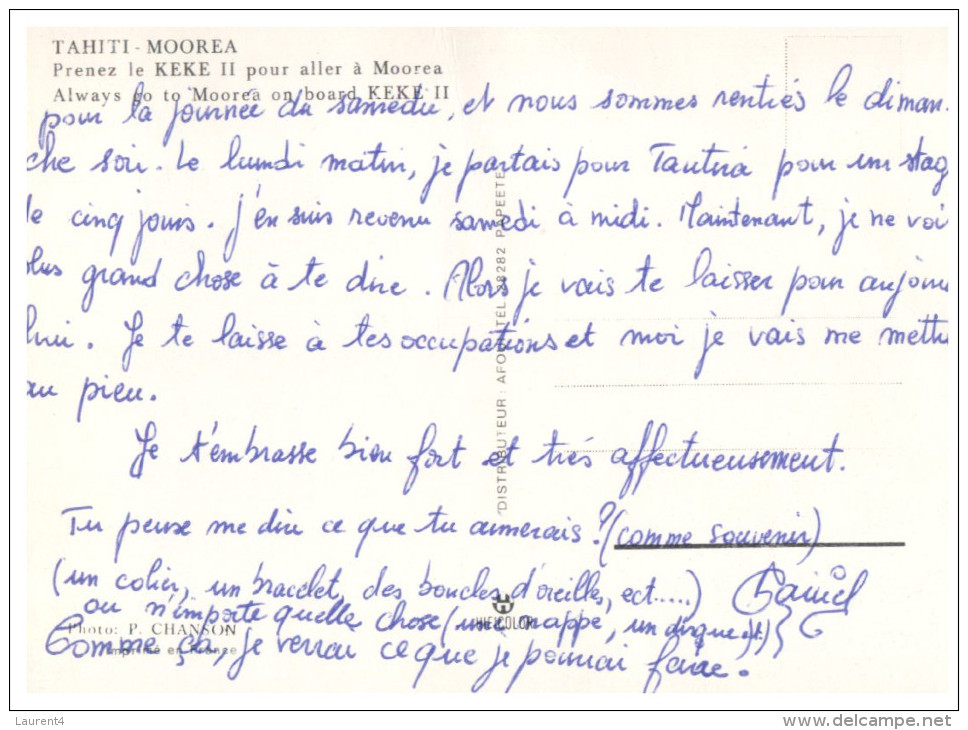 TAHITI - MOOREA
Prenez le KEKE II pour aller à Moorea
Always go to Moorea on board KEKE II
pour la journée du samedu, et nous sommes rentrés le diman-
che soir. Le lundi matin, je partais pour Tautira pour un stag
de cinq jours. J'en suis revenu samedi à midi. Maintenant, je ne voi
plus grand chose à te dire. Alors je vais te laisser pour aujour
hui. Je te laisse à tes occupations et moi je vais me mettre
au pieu.
Je t'embrasse bien fort et très affectueusement.
Tu peuse me dire ce que tu aimerais? (comme souvenir)
(un colier, un bracelet, des boucles d'oreilles, ect.....)
ou n'importe quelle chose (une nappe, un disque ect.)
Comme ça, je verrai ce que je pourrai faire.
DISTRIBUTEUR: AFO HTEL 28282 PAPEETE
Photo: P. CHANSON
Imprimé en France
HIFICOLOR
Laurent4
www.delcampe.net